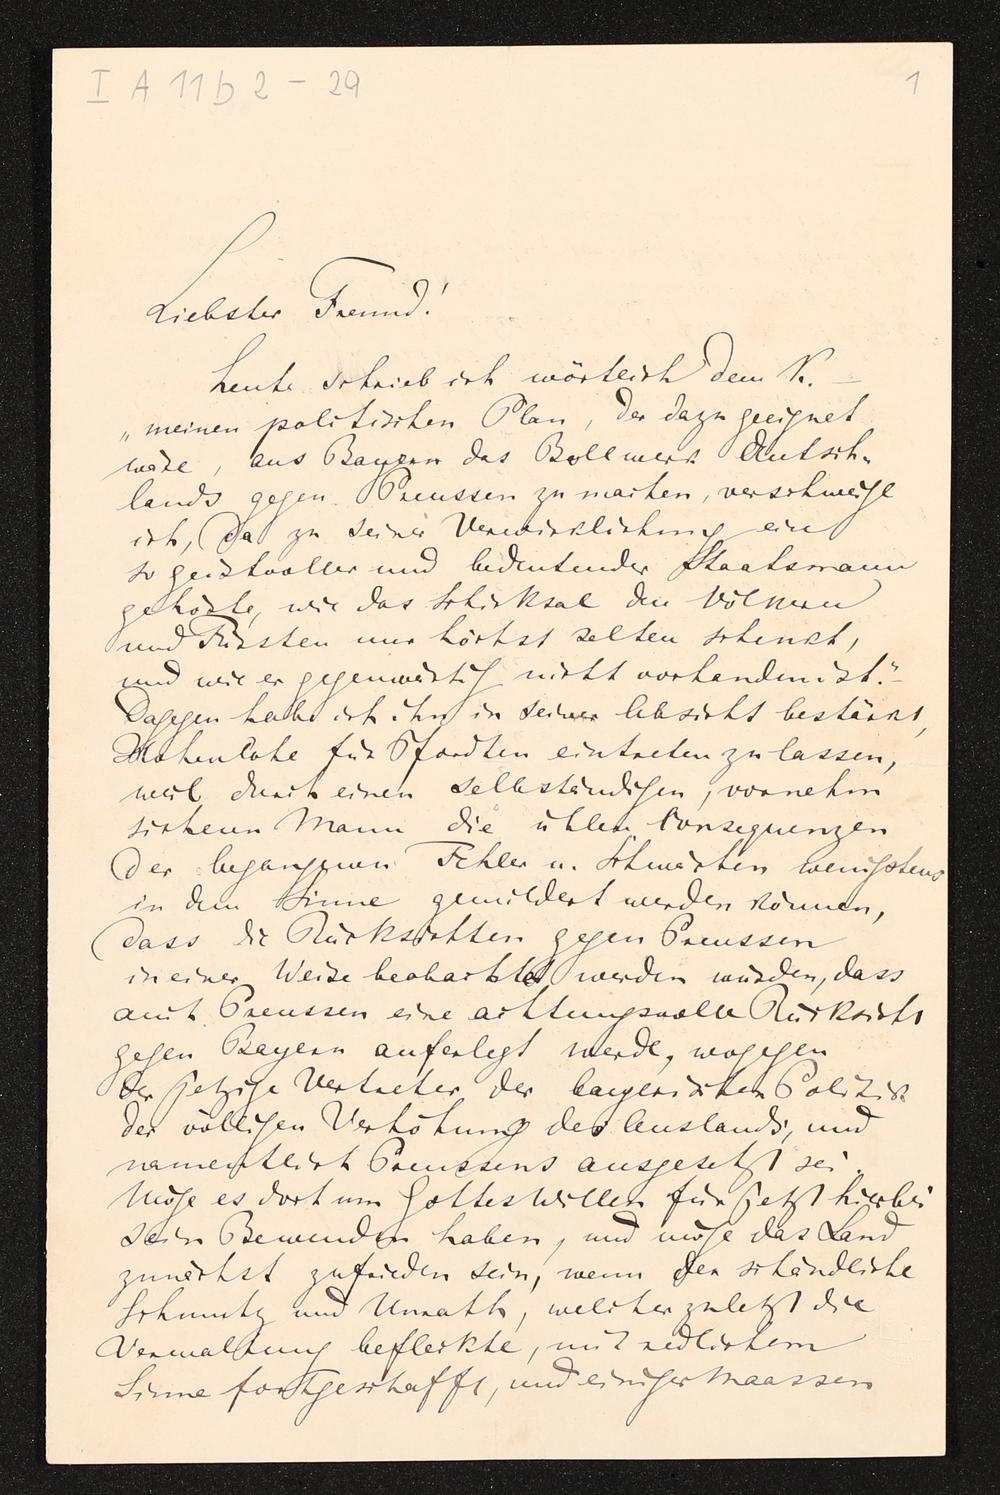 I A 11 b 2 – 29
1
Liebster Freund!
Heute schrieb ich wörtlich dem K. —
„meinen politischen Plan, der dazu geeignet
wäre, aus Bayern das Bollwerk Deutsch-
lands gegen Preussen zu machen, verschweige
ich, da zu seiner Verwirklichung ein
so geistvoller und bedeutender Staatsmann
gehörte, wie das Schicksal den Völkern
und Fürsten nur höchst selten schenkt,
und wie er gegenwärtig nicht vorhanden ist.“ –
Dagegen habe ich ihn in seiner Absicht bestärkt,
Hohenlohe für Pfordten eintreten zu lassen,
weil durch einen selbständigen, vornehm
sicheren Mann die üblen Consequenzen
der begangenen Fehler u. Schwächen wenigstens
in dem Sinne gemildert werden können,
dass die Rücksichten gegen Preussen
in einer Weise beobachtet werden würden, dass
auch Preussen eine achtungsvolle Rücksicht
gegen Bayern auferlegt werde, wogegen
der jetzige Vertreter der bayerischen Politik
der völligen Verhöhnung des Auslands, und
namentlich Preussens ausgesetzt sei.
Möge es dort um Gottes Willen für jetzt hierbei
sein Bewenden haben, und möge das Land
zunächst zufrieden sein, wenn der schändliche
Schmutz und Unrath, welcher zuletzt die
Verwaltung befleckte, mit redlichem
Sinne fortgeschafft, und einiger Maassen